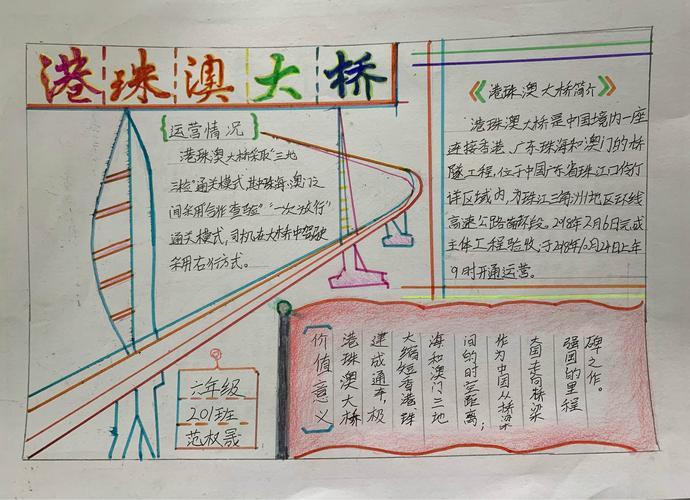 港珠澳大桥
运营情况
港珠澳大桥采取"三地
三检"通关模式,其中珠海、澳门之
间采用合作查验"一次放行"
通关模式,司机在大桥中驾驶
采用右行方式。
《港珠澳大桥简介》
港珠澳大桥是中国境内一座
连接香港、广东珠海和澳门的桥
隧工程,位于中国广东省珠江口伶仃
洋区域内,为珠江三角洲地区环线
高速公路南环段。2018年2月6日完成
主体工程验收;于2018年10月24日上午
9时开通运营。
六年级
201班
范权晟
价值意义
港珠澳大桥
建成通车,极
大缩短香港珠
海和澳门三地
间的时空距离;
作为中国从桥梁
大国走向桥梁
强国的里程
碑之作。